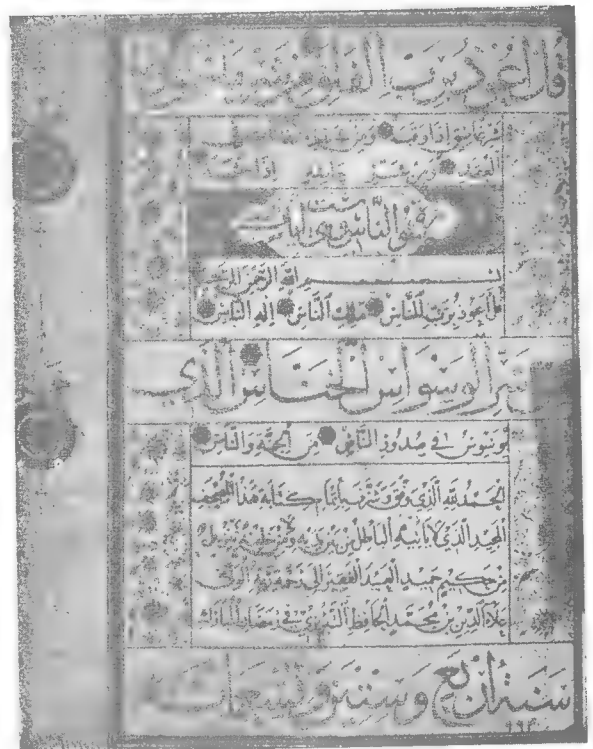 قل اعوذ برب الفلق من شر
شر غاسق اذا وقب ومن
العقد ومن شر حاسد اذا حسد
سورة الناس ست ايات
بسم الله الرحمن الرحيم
قل اعوذ برب الناس ملك الناس اله الناس
من شر الوسواس الخناس الذي
يوسوس في صدور الناس من الجنة والناس
الحمد لله الذي وفق وشرف باتمام كتابة هذا المصحف
المجيد الذي لا ياتيه الباطل من بين يديه ولا من خلفه تنزيل
من حكيم حميد العبد الفقير الى رحمة ربه
علاء الدين بن محمد الحافظ التبريزي في رمضان المبارك
سنة اربع وستين وتسعمائة
٩٦٤